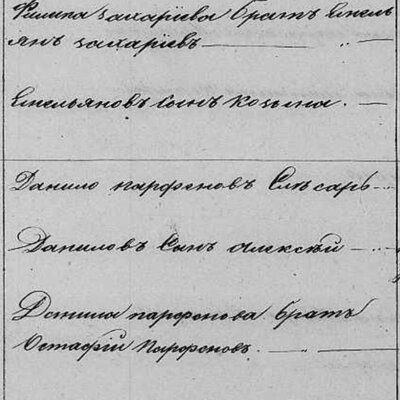 Филипа Захарiева братъ Емель
янъ Захарiевъ
Емельяновъ Сынъ Козьма.
Данило Парфеновъ Слѣсарь
Даниловъ Сынъ Алексѣй
Данила Парфенова братъ
Остафiй Парфеновъ.